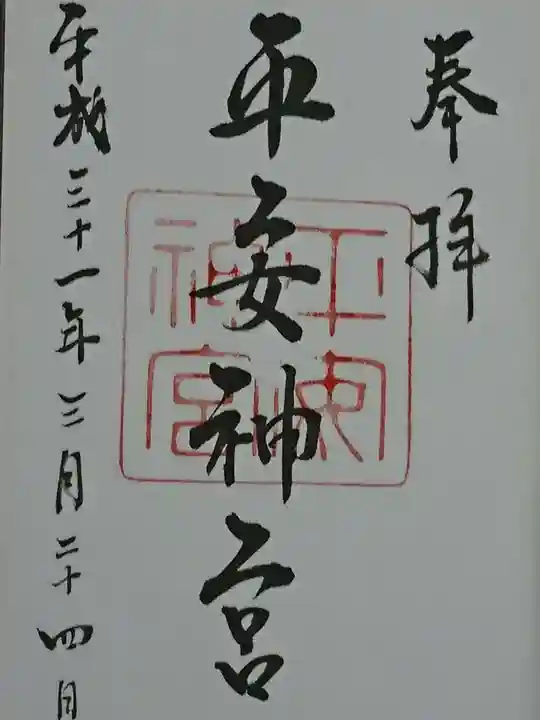 奉拝
平安神宮
平成三十一年三月二十四日
平安神宮